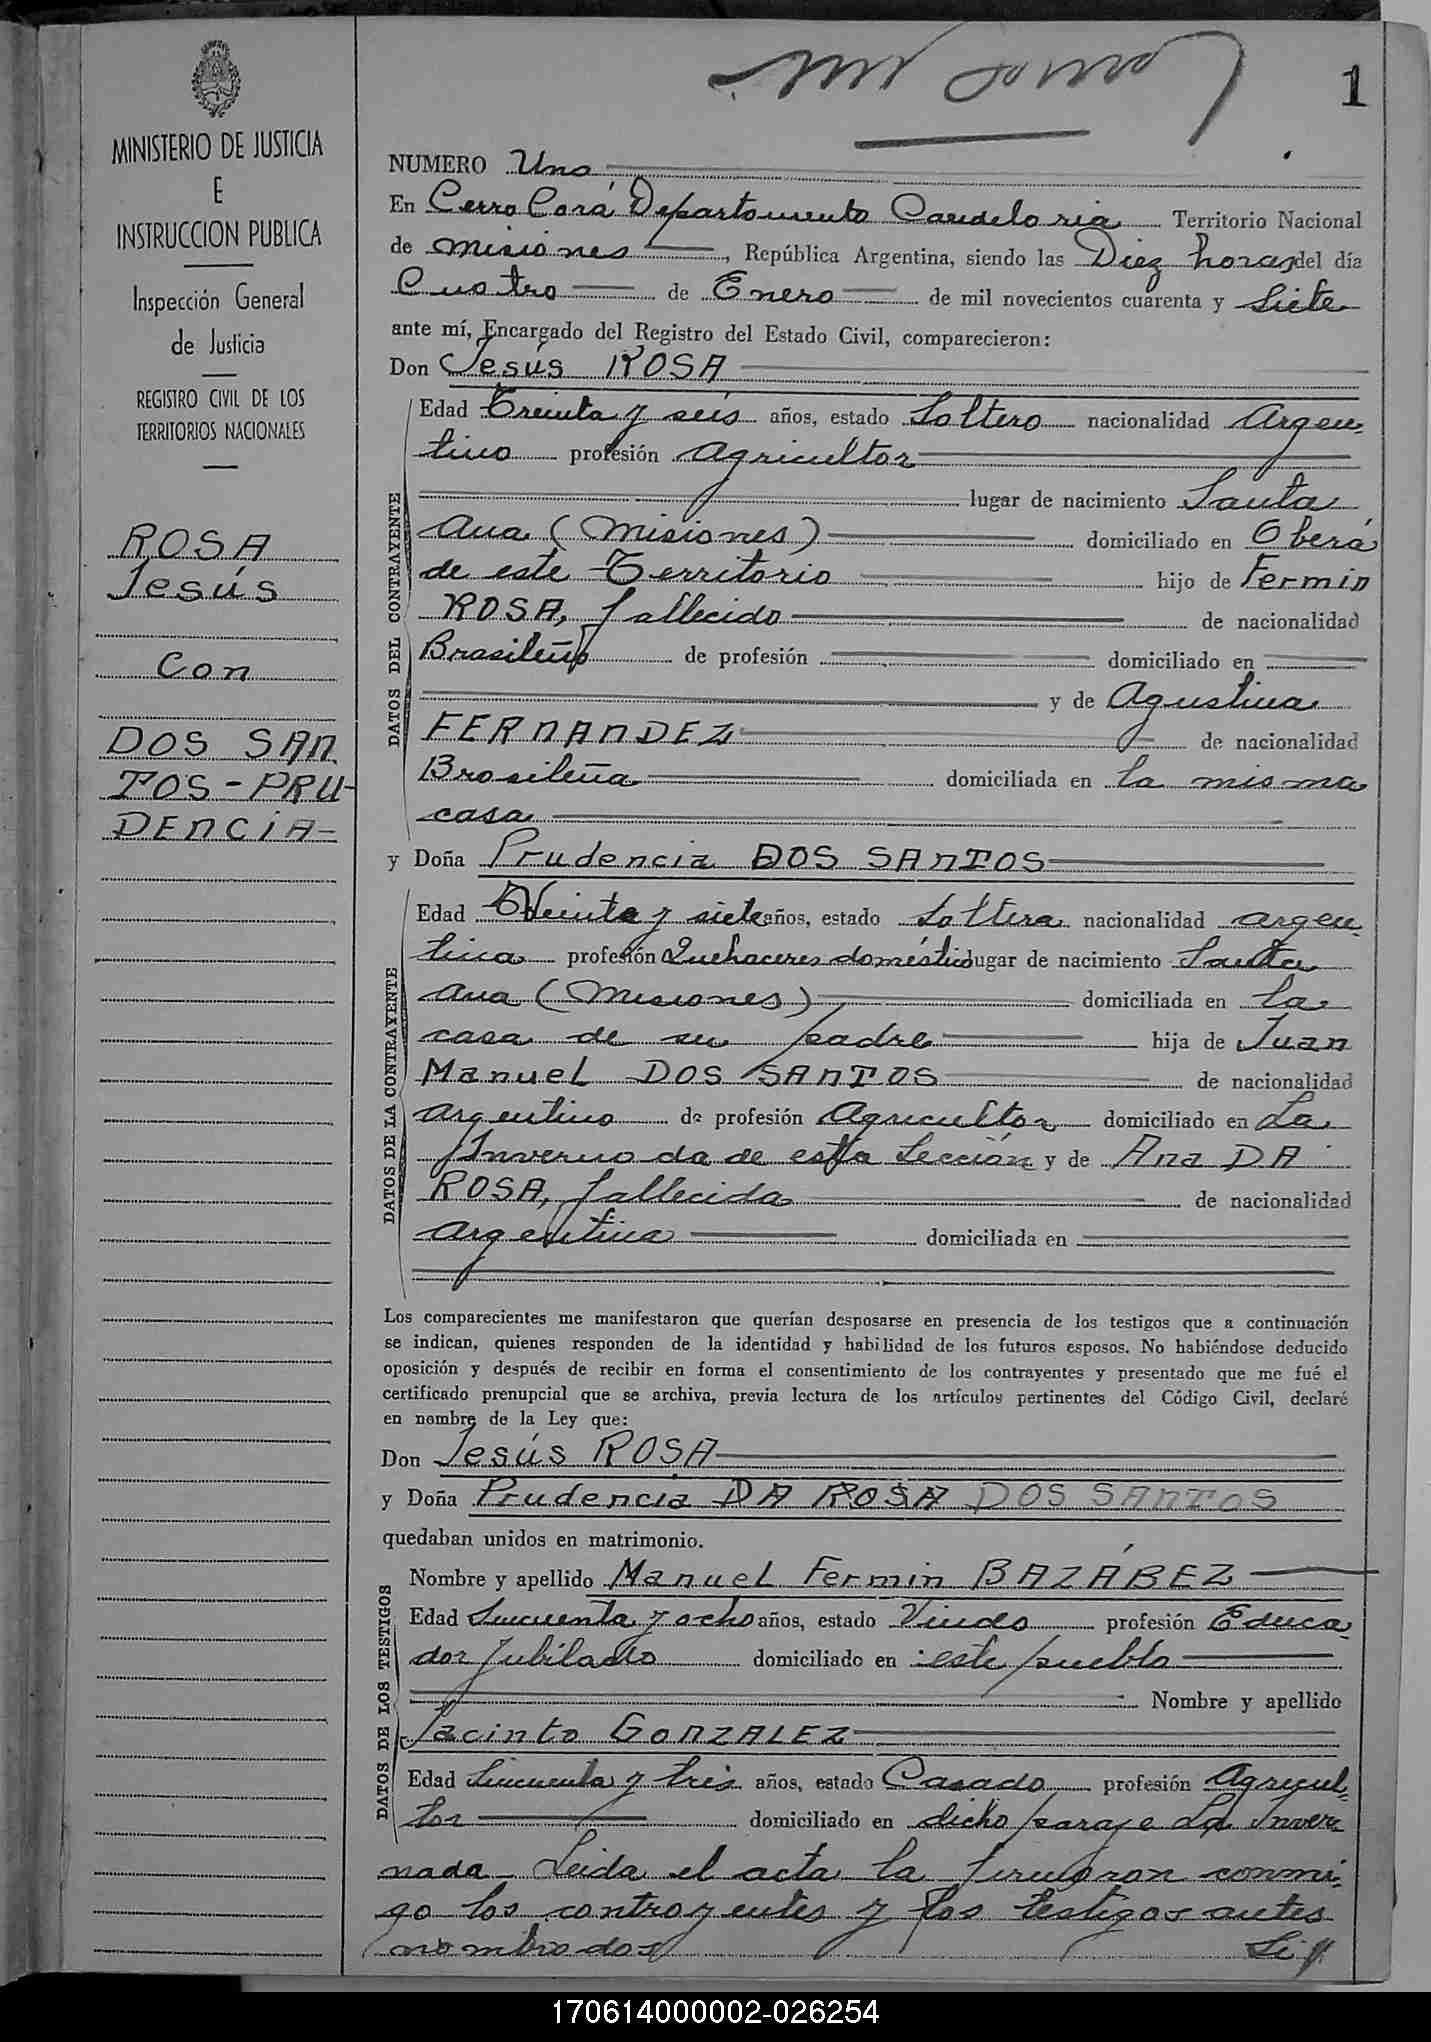 1
MINISTERIO DE JUSTICIA
E
INSTRUCCION PUBLICA
Inspección General
de Justicia
REGISTRO CIVIL DE LOS
TERRITORIOS NACIONALES
ROSA
Jesús
con
DOS SAN
TOS-PRU-
DENCIA=
NUMERO Uno
En Cerro Corá Departamento Candelaria Territorio Nacional
de Misiones, República Argentina, siendo las Diez horas del día
Cuatro de Enero de mil novecientos cuarenta y Siete
ante mí, Encargado del Registro del Estado Civil, comparecieron:
Don Jesús ROSA
DATOS DEL CONTRAYENTE
Edad Treinta y seis años, estado Soltero nacionalidad Argen-
tino profesión Agricultor
lugar de nacimiento Santa
Ana (Misiones) domiciliado en Oberá
de este Territorio hijo de Fermin
ROSA, fallecido de nacionalidad
Brasileño de profesión domiciliado en
y de Agustina
FERNANDEZ de nacionalidad
Brasileña domiciliada en la misma
casa
y Doña Prudencia DOS SANTOS
DATOS DE LA CONTRAYENTE
Edad y siete años, estado Soltera nacionalidad argen-
tina profesión Quehaceres domésticos lugar de nacimiento Santa
Ana (Misiones) domiciliada en la
casa de su padre hija de Juan
Manuel DOS SANTOS de nacionalidad
argentino de profesión Agricultor domiciliado en La
Invernada de esta Sección y de Ana DA
ROSA, fallecida de nacionalidad
argentina domiciliada en
Los comparecientes me manifestaron que querían desposarse en presencia de los testigos que a continuación
se indican, quienes responden de la identidad y habilidad de los futuros esposos. No habiéndose deducido
oposición y después de recibir en forma el consentimiento de los contrayentes y presentado que me fué el
certificado prenupcial que se archiva, previa lectura de los artículos pertinentes del Código Civil, declaré
en nombre de la Ley que:
Don Jesús ROSA
y Doña Prudencia DA ROSA DOS SANTOS
quedaban unidos en matrimonio.
DATOS DE LOS TESTIGOS
Nombre y apellido Manuel Fermin BAZÁBEZ
Edad Sincuenta y ocho años, estado Viudo profesión Educa-
dor Jubilado domiciliado en este pueblo
Nombre y apellido
Jacinto GONZALEZ
Edad Sincuenta y tres años, estado Casado profesión Agricul-
tor domiciliado en dicho paraje La Inver-
nada. Leida el acta la firmaron conmi-
go los contrayentes y los testigos antes
nombrados
170614000002-026254